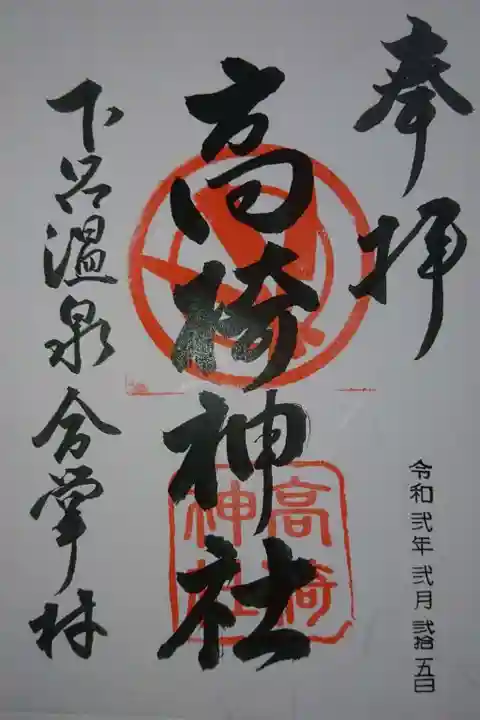 奉拝
高椅神社
下呂温泉合掌村
令和 弐年 弐月 弐拾五日
高椅
神社